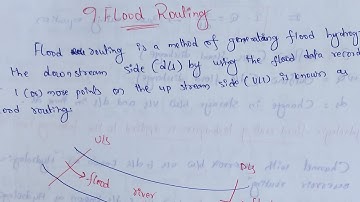 9 Flood Routing
Flood routing is a method of generating flood hydrog
the downstream side (d/s) by using the flood data record
1 (or) more points on the up stream side (U/s). is known as
ood routing.
U/s
D/s
flood
river